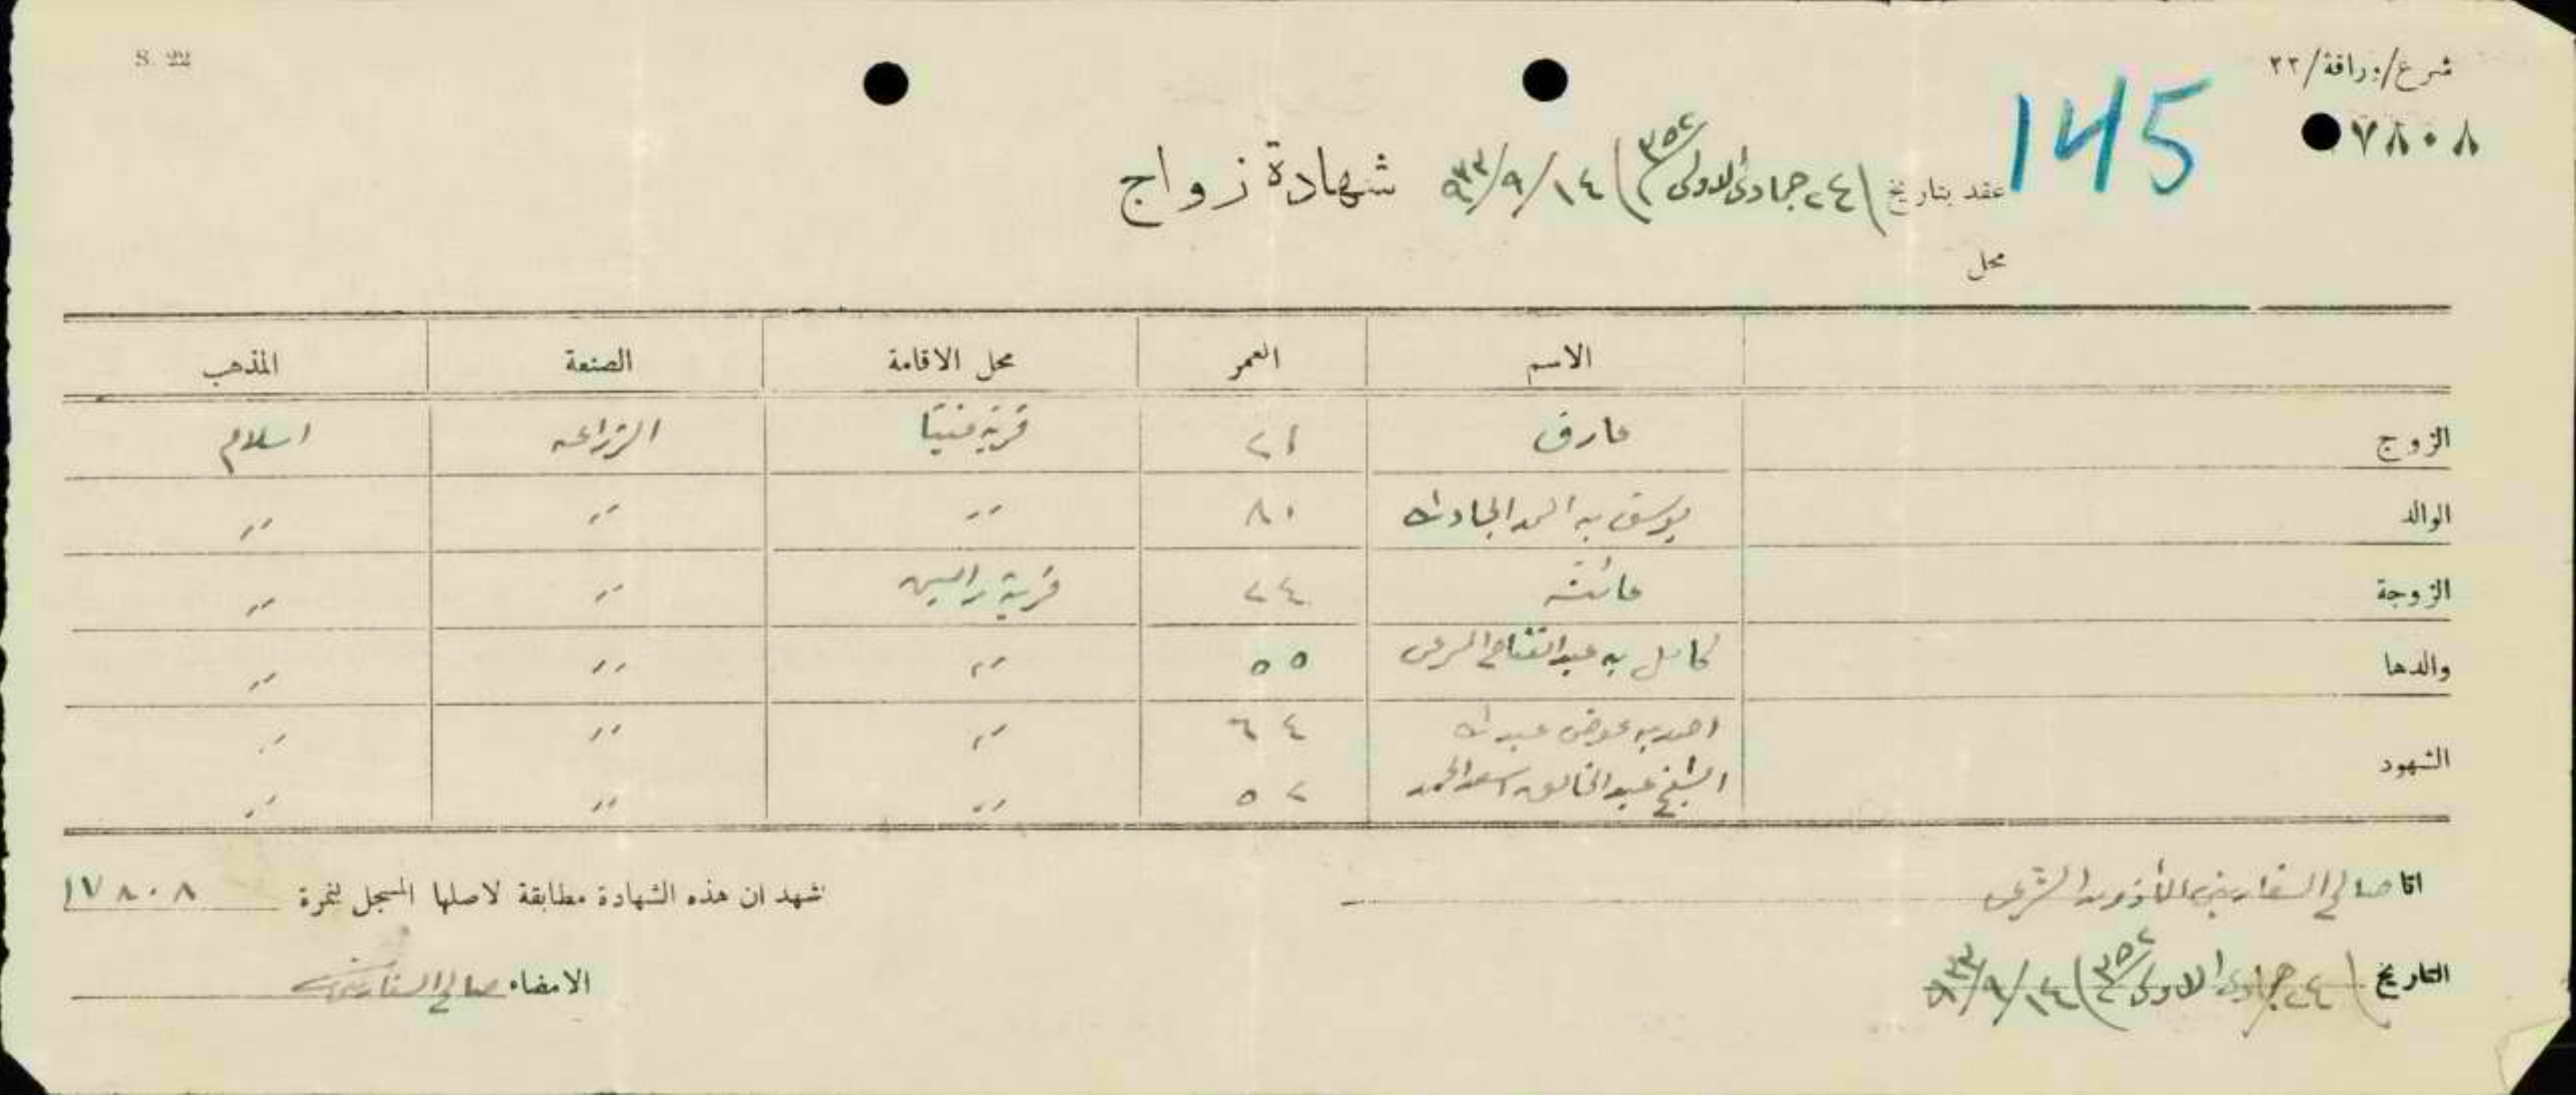 S. 22
شرع/وراقة/٢٢
٧٨٠٨
145
عقد بتاريخ (٢٤ جمادى الاولى ٣٥٢) ١٤/٩/٩٣٣ شهادة زواج
محل
الاسم العمر محل الاقامة الصنعة المذهب
الزوج عارف ٢١ قرية الزراعه اسلام
الوالد يوسف بن ٨٠ " " "
الزوجة عائشه ٢٤ قرية رامين " "
والدها كامل بن عبدالفتاح المرعي ٥٥ " " "
الشهود احمد بن عوض عبد الله ٦٤ " " "
الشيخ عبد الخالق اسعد الحمد ٥٢ " " "
انا صالح السفاريني المأذون الشرعي
نشهد ان هذه الشهادة مطابقة لاصلها المسجل بنمرة ١٧٨٠٨
التاريخ (٢٤ جمادى الاولى ٣٥٢) ١٤/٩/٩٣٣
الامضاء صالح السفاريني